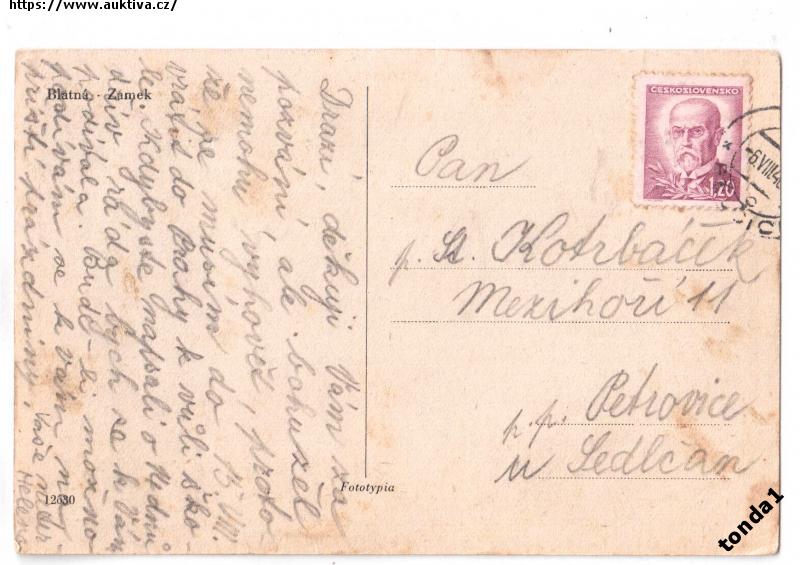 https://www.auktiva.cz/
Blatná - Zámek
Drazí, děkuji Vám za
pozvání, ale bohužel
nemohu vyhověť, proto-
že se musím do 13. VIII.
vrátit do Prahy k vůli ško-
le. Kdybyste napsali o
dřív ráda bych se k Vám
podívala. Bude-li možno
podívám se k vám na
příští prázdniny. Vaše
Helena
12630
Fototypia
ČESKOSLOVENSKO
1.20
6.VIII.46
Pan
p. St. Kotrbáček
Mezihoří 11
p.p. Petrovice
u Sedlčan
tonda1